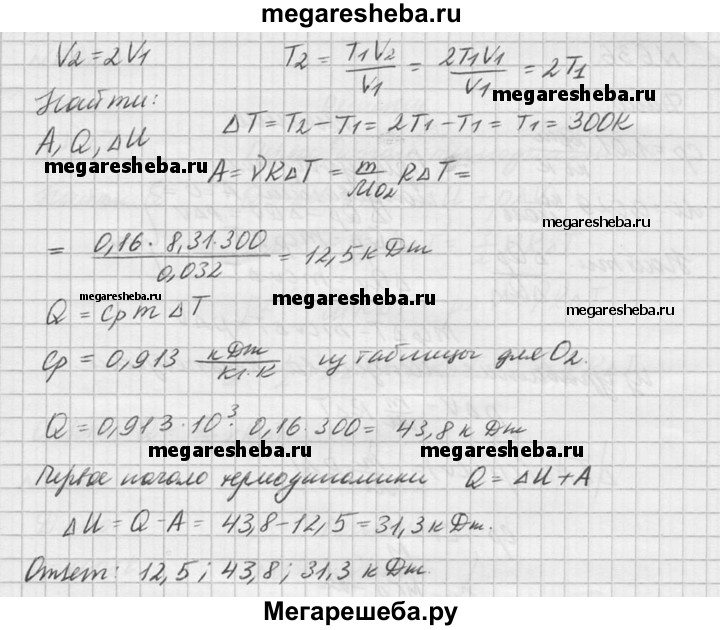 megaresheba.ru
V2 = 2V1 T2 = T1V2/V1 = 2T1V1/V1 = 2T1
megaresheba.ru
Найти: ΔT = T2 − T1 = 2T1 − T1 = T1 = 300K
A, Q, ΔU
megaresheba.ru
A = νRΔT = m/MO2 RΔT =
megaresheba.ru
= 0,16 · 8,31 · 300/0,032 = 12,5 кДж
megaresheba.ru
megaresheba.ru
megaresheba.ru
Q = Cp m ΔT
Cp = 0,913 кДж/кг·К из таблицы для O2.
Q = 0,913 · 10³ · 0,16 · 300 = 43,8 кДж
megaresheba.ru
megaresheba.ru
Первое начало термодинамики Q = ΔU + A
ΔU = Q − A = 43,8 − 12,5 = 31,3 кДж.
Ответ: 12,5; 43,8; 31,3 кДж.
Мегарешеба.ру